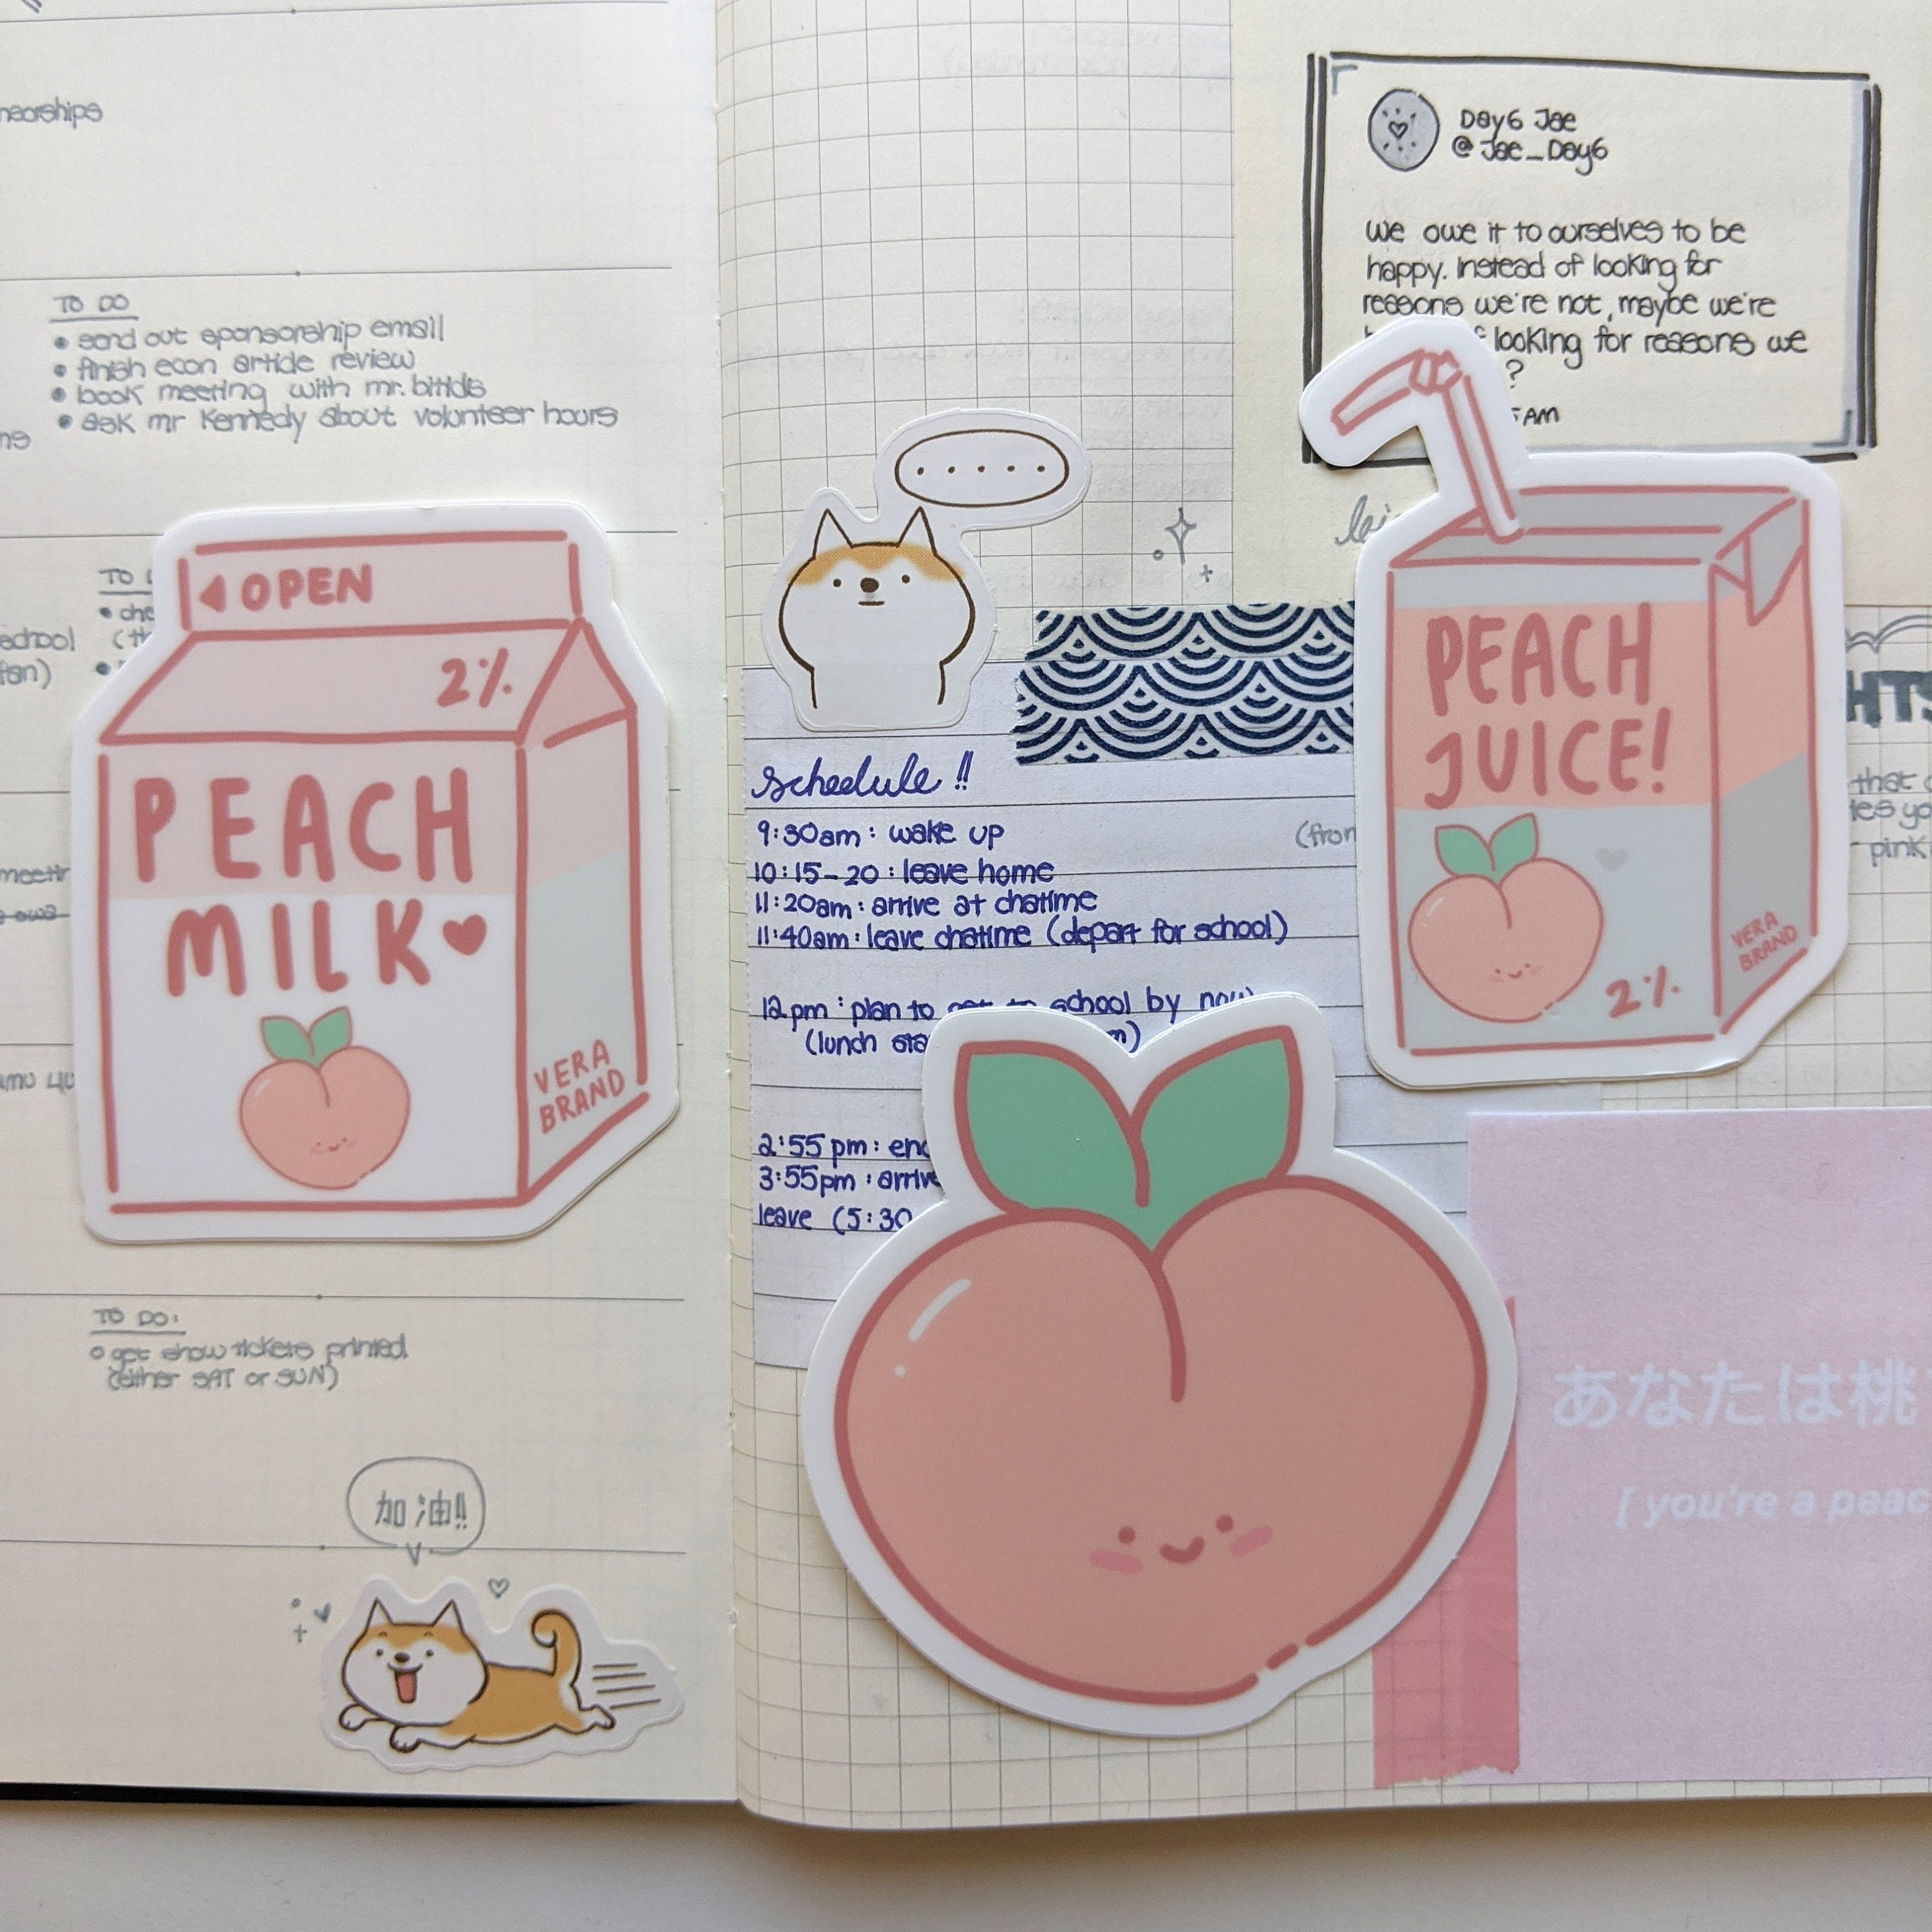 TO DO
• send out sponsorship email
• finish econ article review
• book meeting with
• ask mr Kennedy about volunteer hours
school
◀ OPEN
2%
PEACH
MILK♥
VERA
BRAND
TO DO:
○ get show tickets printed
(either SAT or SUN)
加油!!
Day6 Jae
@Jae_Day6
we owe it to ourselves to be
happy. Instead of looking for
reasons we're not, maybe we're
looking for reasons we
?
AM
.....
schedule!!
9:30am: wake up
10:15-20: leave home
11:20am: arrive at chatime
11:40am: leave chatime (depart for school)
12pm: plan to get to school by now
(lunch
2:55pm:
3:55pm:
leave (5:30
PEACH
JUICE!
2%
VERA
BRAND
that
pink
あなたは桃
[ you're a